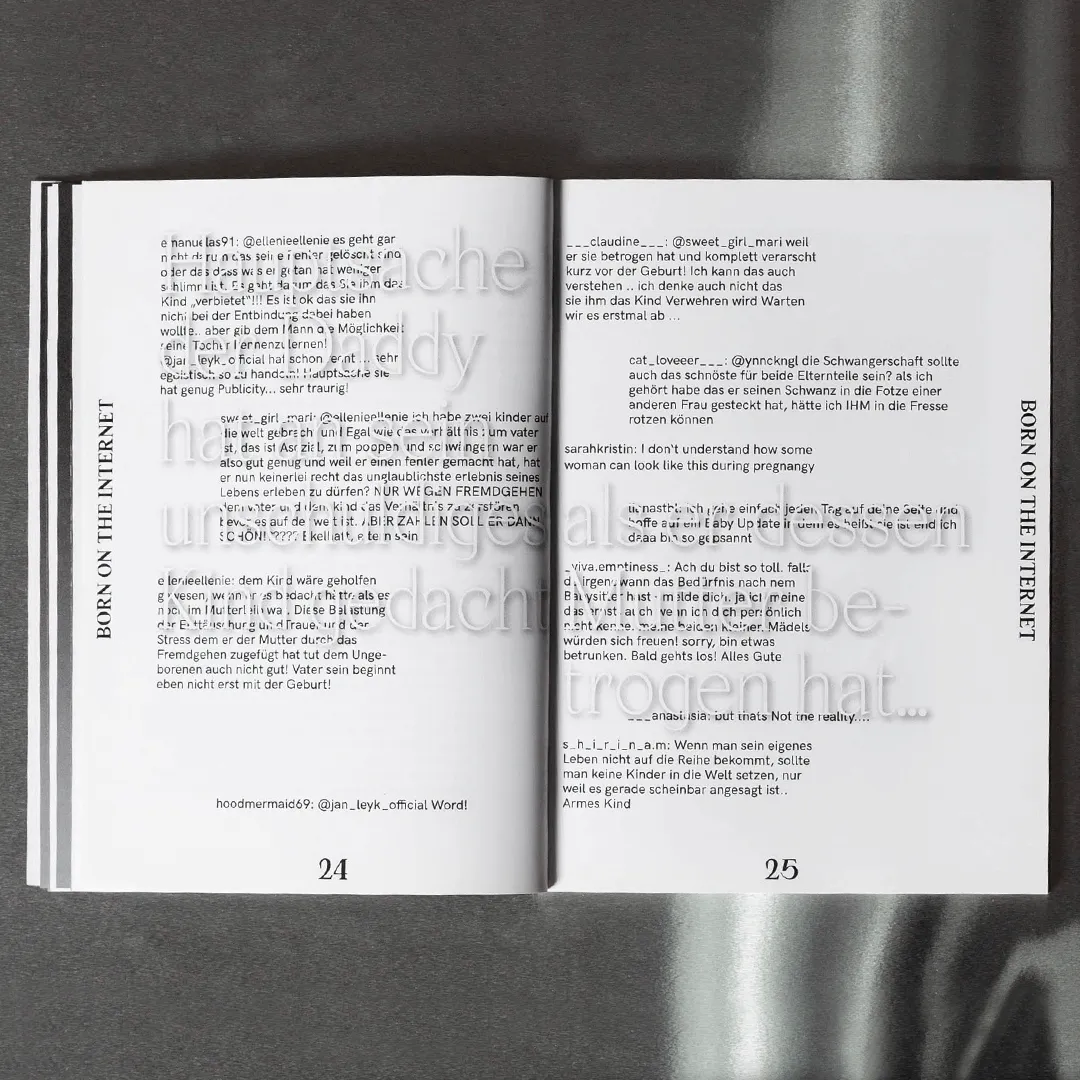 BORN ON THE INTERNET
emanuelas91: @ellenieellenie es geht gar
nicht darum das seine Fehler gelöscht sind
oder das dass was er getan hat weniger
schlimm ist. Es geht darum das Sie ihm das
Kind „verbietet“!!! Es ist ok das sie ihn
nicht bei der Entbindung dabei haben
wollte.. aber gib dem Mann die Möglichkeit
seine Tochter kennenzulernen!
@jan_leyk_official hat schon recht ... sehr
egoistisch so zu handeln! Hauptsache sie
hat genug Publicity... sehr traurig!
sweet_girl_mari: @ellenieellenie ich habe zwei kinder auf
die welt gebracht und Egal wie das verhältnis zum vater
ist, das ist Asozial, zum poppen und schwängern war er
also gut genug und weil er einen fehler gemacht hat, hat
er nun keinerlei recht das unglaublichste erlebnis seines
Lebens erleben zu dürfen? NUR WEGEN FREMDGEHEN
dem vater und dem kind das Verhältnis zu zerstören
bevor es auf der welt ist. ABER ZAHLEN SOLL ER DANN
SCHÖN!!???? Ekelhaft,
ellenieellenie: dem Kind wäre geholfen
gewesen, wenn er es bedacht hätte als es
noch im Mutterleib war. Diese Belastung
der Enttäuschung und Trauer und der
Stress dem er der Mutter durch das
Fremdgehen zugefügt hat tut dem Unge-
borenen auch nicht gut! Vater sein beginnt
eben nicht erst mit der Geburt!
hoodmermaid69: @jan_leyk_official Word!
24
Hauptsache
der Daddy
hat an sein
unschuldiges
Kind gedacht
als er dessen
Mutter be-
trogen hat...
___claudine___: @sweet_girl_mari weil
er sie betrogen hat und komplett verarscht
kurz vor der Geburt! Ich kann das auch
verstehen .. ich denke auch nicht das
sie ihm das Kind Verwehren wird Warten
wir es erstmal ab ...
cat_loveeer___: @ynnckngl die Schwangerschaft sollte
auch das schönste für beide Elternteile sein? als ich
gehört habe das er seinen Schwanz in die Fotze einer
anderen Frau gesteckt hat, hätte ich IHM in die Fresse
rotzen können
sarahkristin: I don't understand how some
woman can look like this during pregnangy
ich gehe einfach jeden Tag auf deine Seite und
hoffe auf ein Baby Update in dem es heißt sie ist end ich
daaa bin so gepsannt
_viva.emptiness_: Ach du bist so toll. falls
du irgendwann das Bedürfnis nach nem
Babysitter hast - melde dich. ja ich meine
das ernst auch wenn ich dich persönlich
nicht kenne. meine beiden kleinen Mädels
würden sich freuen! sorry, bin etwas
betrunken. Bald gehts los! Alles Gute
___anastasia: but thats Not the reality....
s_h_i_r_i_n_a.m: Wenn man sein eigenes
Leben nicht auf die Reihe bekommt, sollte
man keine Kinder in die Welt setzen, nur
weil es gerade scheinbar angesagt ist..
Armes Kind
25
BORN ON THE INTERNET